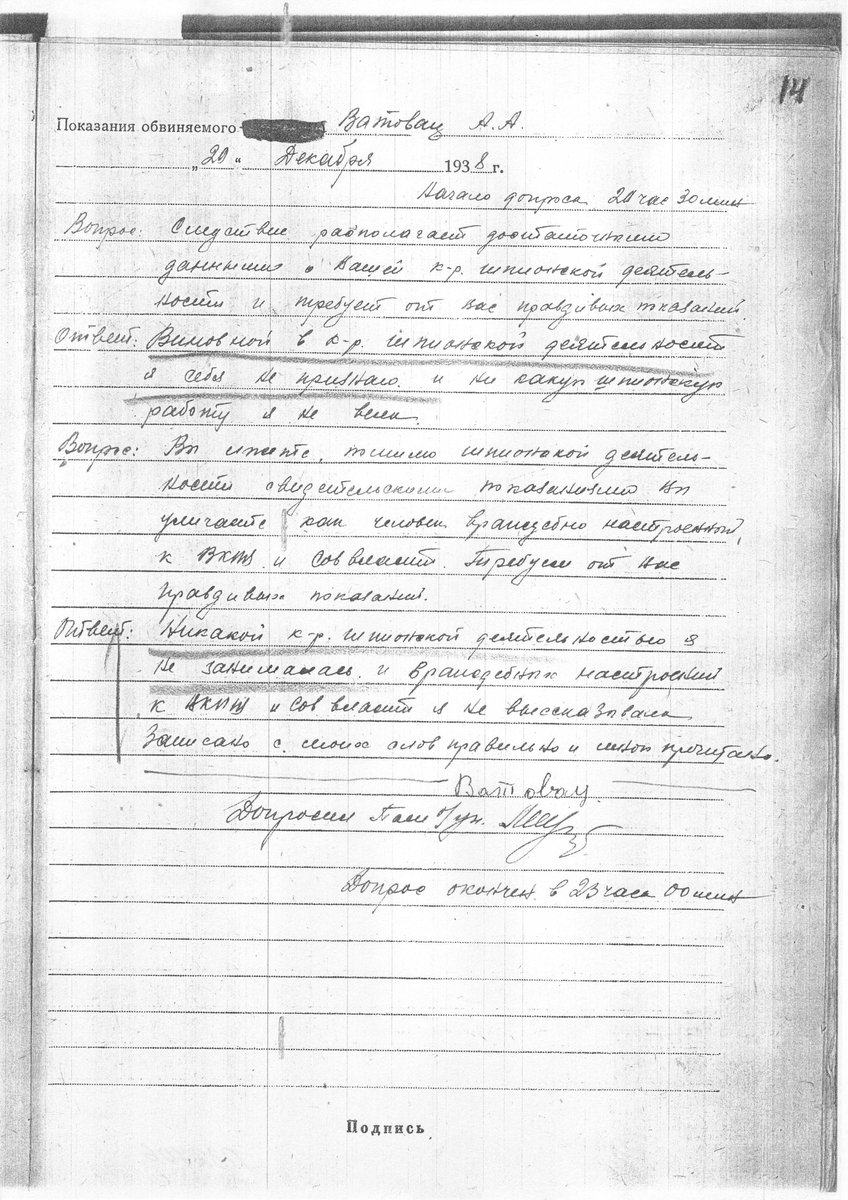 14
Показания обвиняемого Ватовац А.А.
„20“ Декабря 1938 г.
Начало допроса 20 час 30 мин
Вопрос: Следствие располагает достаточными
данными о Вашей к-р. шпионской деятель-
ности и требует от вас правдивых показаний.
Ответ: Виновной в к-р. шпионской деятельности
я себя не признаю и ни какую шпионскую
работу я не вела.
Вопрос: Вы лжете, помимо шпионской деятель-
ности свидетельскими показаниями вы
уличаетесь как человек враждебно настроенный,
к ВКПб и Соввласти. Требуем от вас
правдивых показаний.
Ответ: Никакой к-р. шпионской деятельностью я
не занималась и враждебных настроений
к ВКПб и Соввласти я не высказывала
Записано с моих слов правильно и мной прочитано.
Ватовац.
Допросил
Допрос окончен в 23 часа 00 мин
Подпись